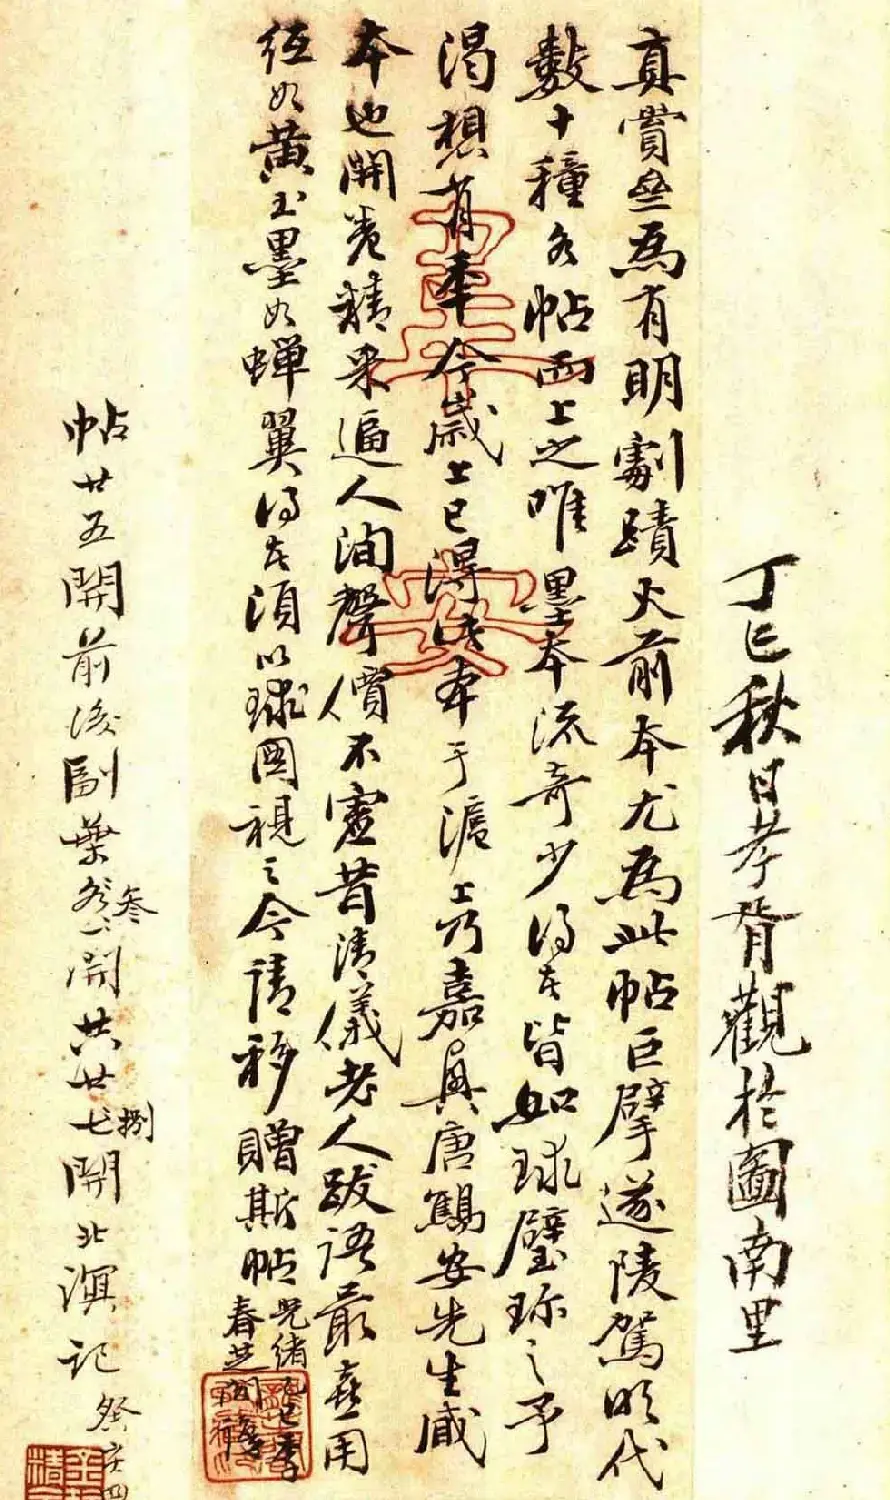 丁巳秋日孝胥觀於圖南里
真賞叁為有明劇蹟火前本尤為此帖巨擘遂陵駕明代
數十種名帖而上之唯墨本流奇少得者皆如球璧珍之予
渴想有年今歲上巳得此本于滬上乃嘉興唐鷦安先生咸
本也開卷精采逼人洵聲價不虛昔清儀老人跋語最喜用
紙如黃玉墨如蟬翼得者須以球圖視之今請移贈斯帖
光緒乙巳季
春芝閣
帖廿五開前後副葉叁開共廿捌開北溟記癸亥四